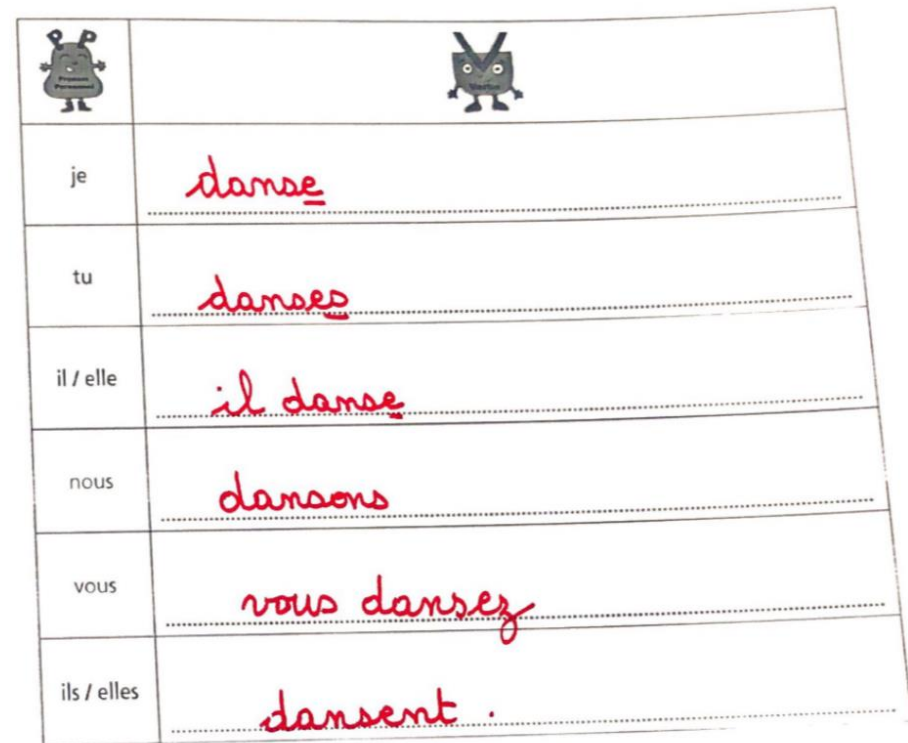 P P
Pronom
Personnel
V
Verbe
je danse
tu danses
il / elle il danse
nous dansons
vous vous dansez
ils / elles dansent .